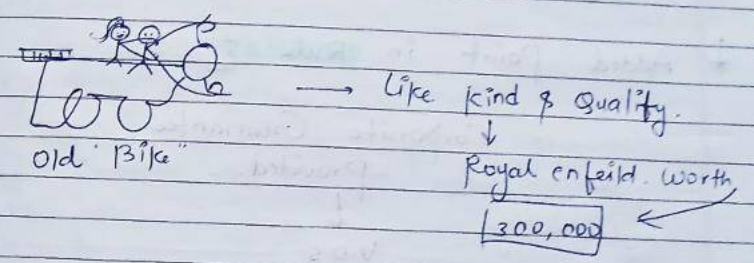 → Like kind & Quality.
↓
Old "Bike"
Royal enfeild. Worth
300,000